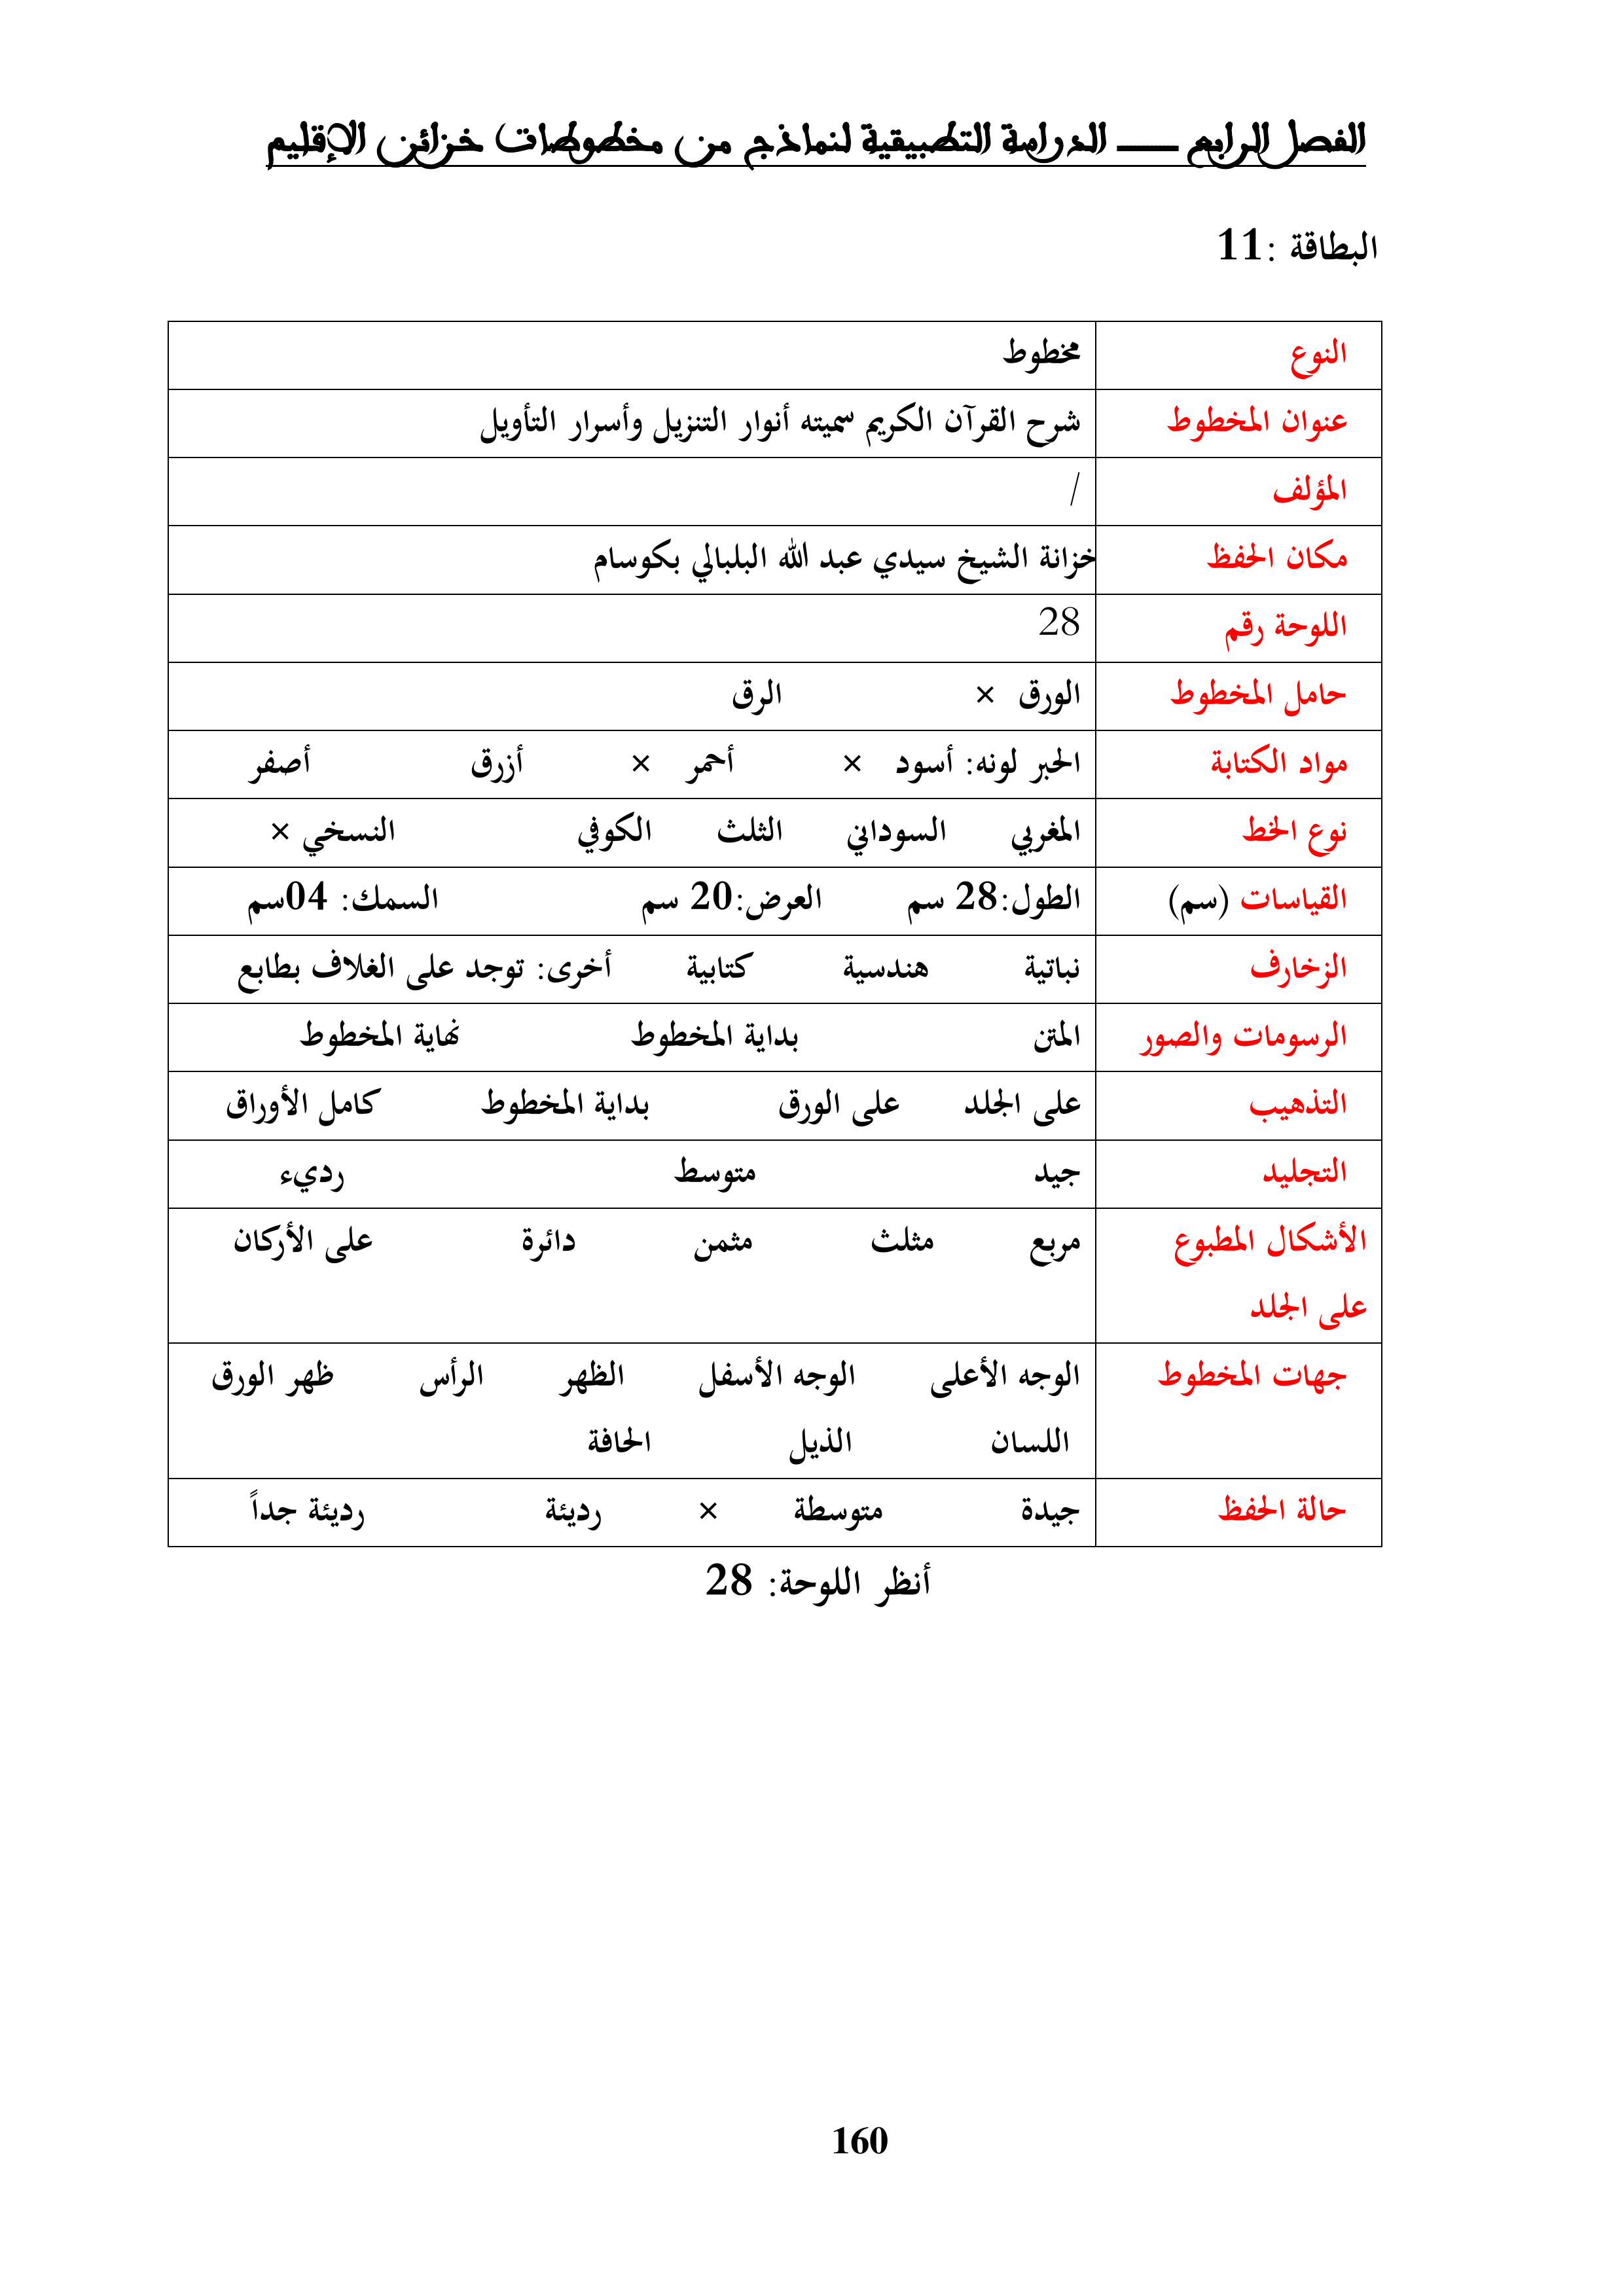 الفصل الرابع ــــــ الدراسة التطبيقية لنماذج من مخطوطات خزائن الإقليم
البطاقة :11
النوع مخطوط
عنوان المخطوط شرح القرآن الكريم سميته أنوار التنزيل وأسرار التأويل
المؤلف /
مكان الحفظ خزانة الشيخ سيدي عبد الله البلبالي بكوسام
اللوحة رقم 28
حامل المخطوط الورق × الرق
مواد الكتابة الحبر لونه: أسود × أحمر × أزرق أصفر
نوع الخط المغربي السوداني الثلث الكوفي النسخي ×
القياسات (سم) الطول:28 سم العرض:20 سم السمك: 04سم
الزخارف نباتية هندسية كتابية أخرى: توجد على الغلاف بطابع
الرسومات والصور المتن بداية المخطوط نهاية المخطوط
التذهيب على الجلد على الورق بداية المخطوط كامل الأوراق
التجليد جيد متوسط رديء
الأشكال المطبوع مربع مثلث مثمن دائرة على الأركان
على الجلد
جهات المخطوط الوجه الأعلى الوجه الأسفل الظهر الرأس ظهر الورق
اللسان الذيل الحافة
حالة الحفظ جيدة متوسطة × رديئة رديئة جداً
أنظر اللوحة: 28
160